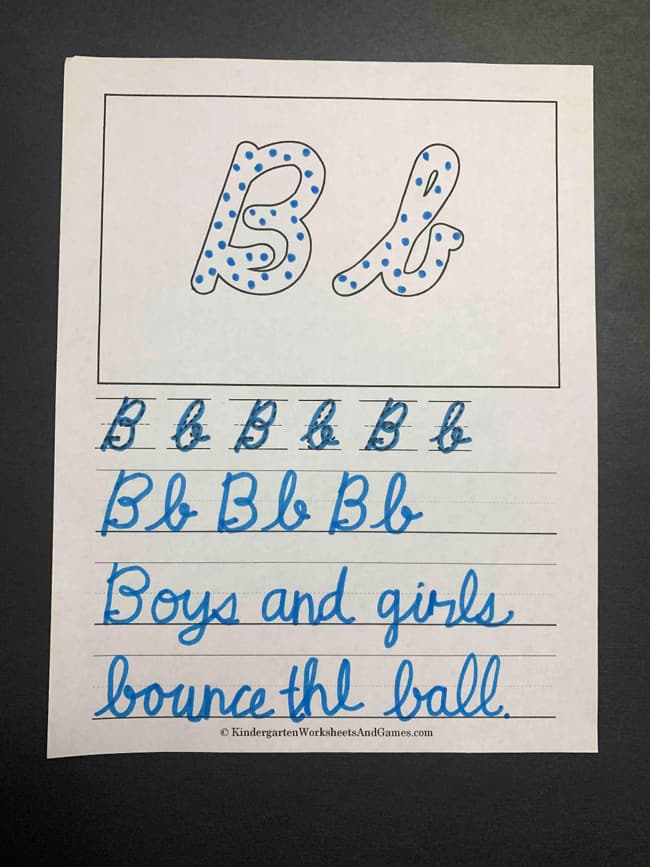 B b
B b B b B b
Bb Bb Bb
Boys and girls
bounce the ball.
© KindergartenWorksheetsAndGames.com